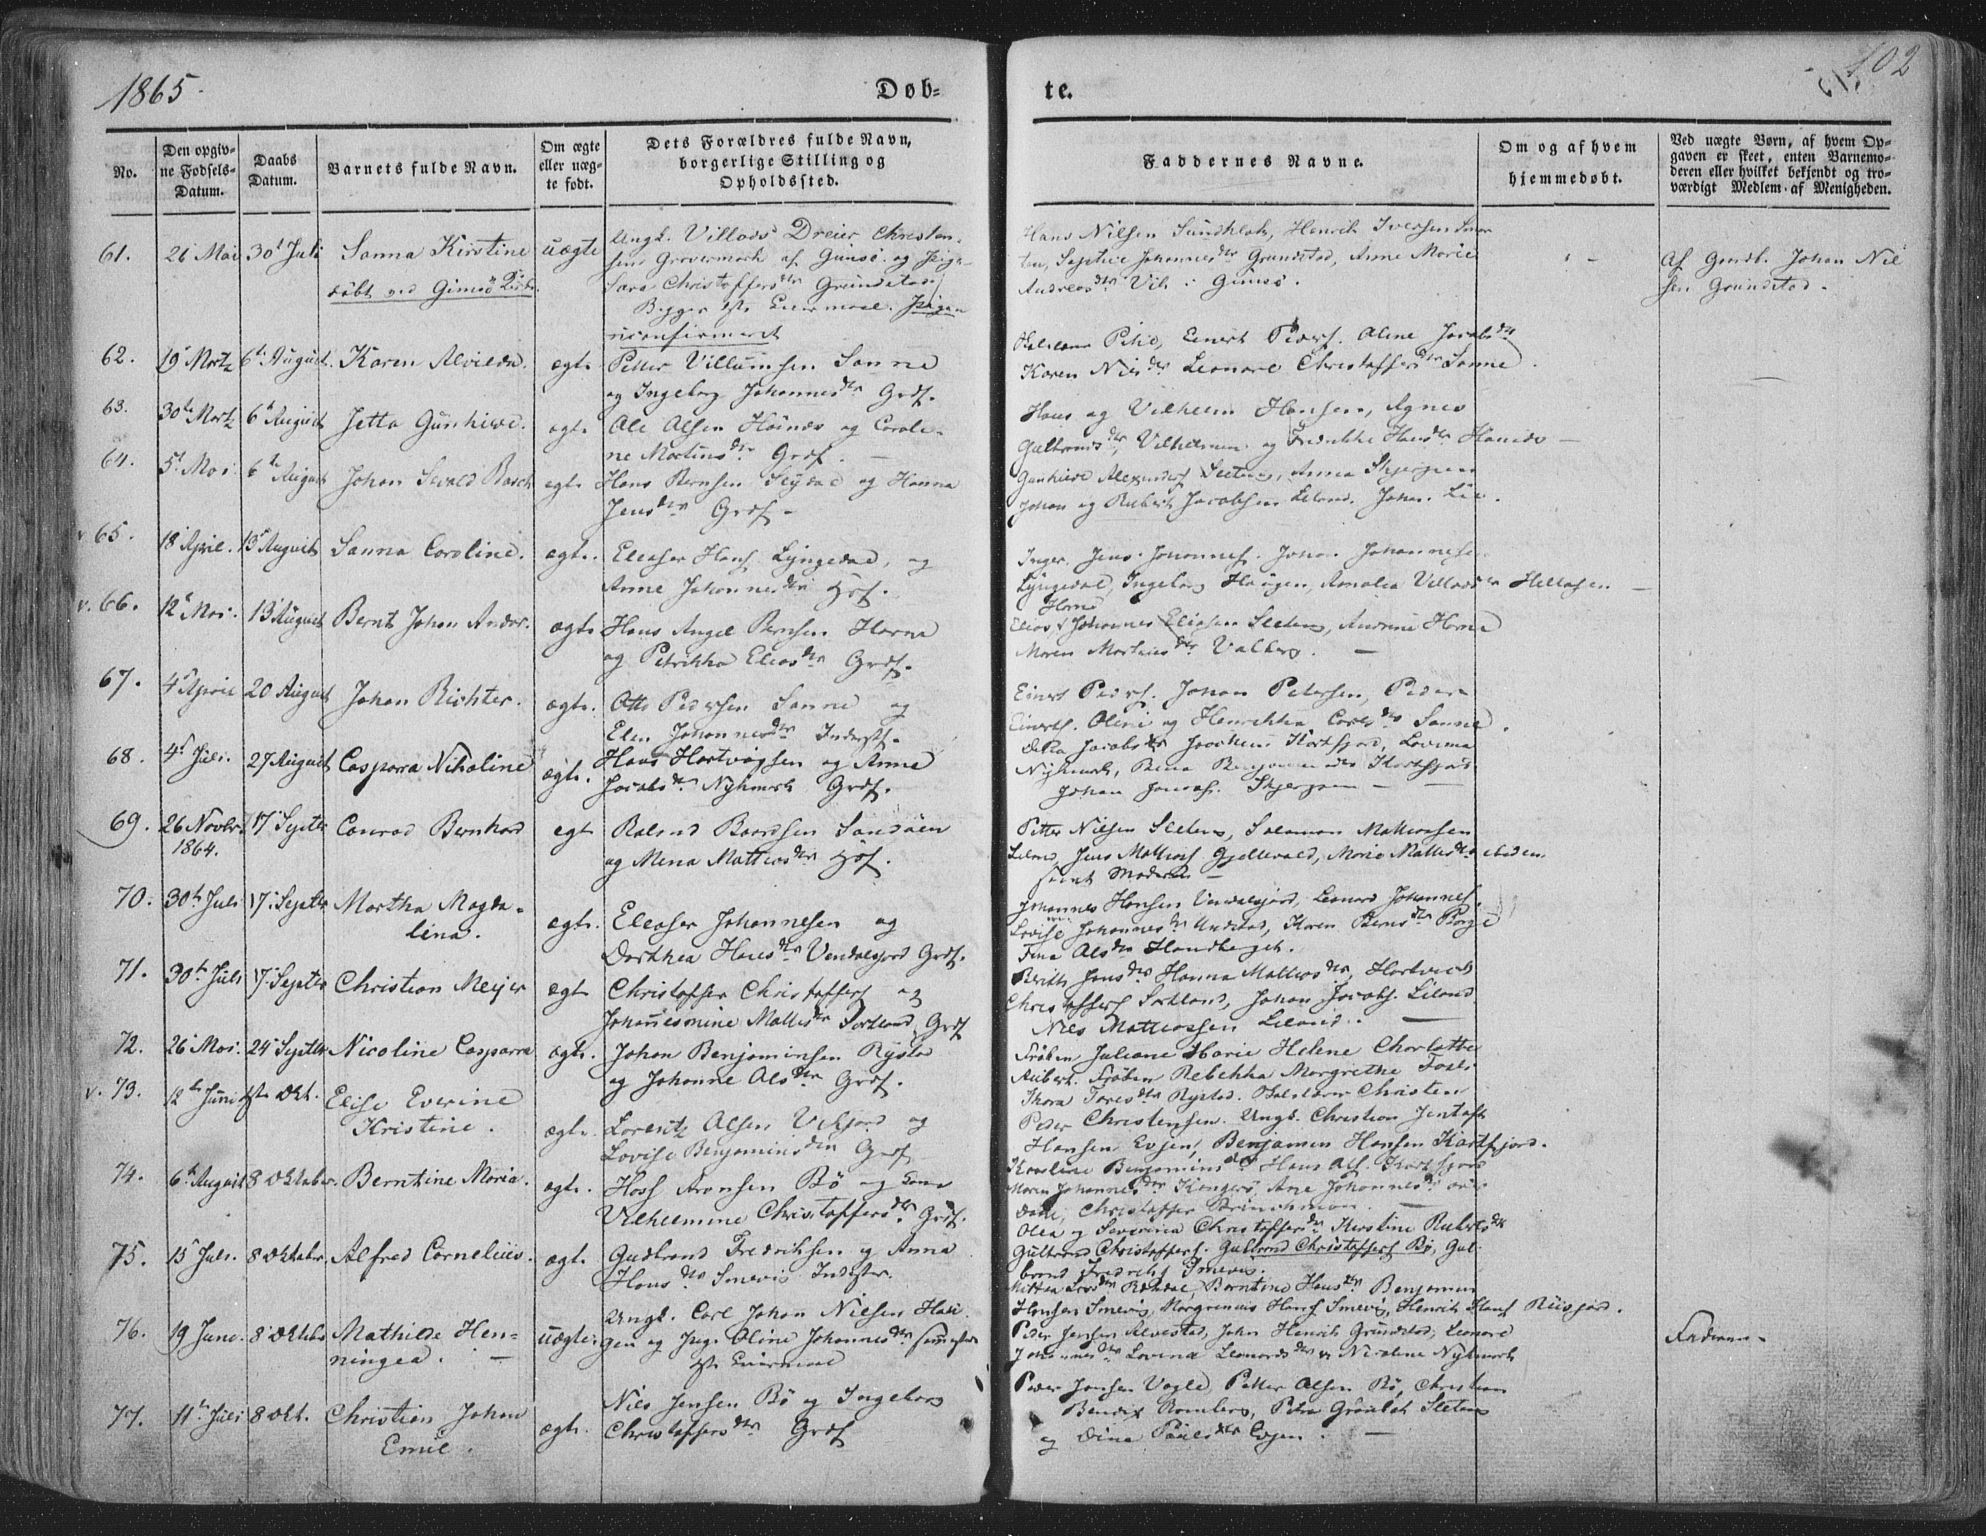 1865.
Døb-
te.
102
No.
Den opgiv-
ne Fødsels-
Datum.
Daabs
Datum.
Barnets fulde Navn.
Om ægte
eller uæg-
te født.
Dets Forældres fulde Navn,
borgerlige Stilling og
Opholdssted.
Faddernes Navne.
Om og af hvem
hjemmedøbt.
Ved uægte Børn, af hvem Op-
gaven er skeet, enten Barnemo-
deren eller hvilket bekjendt og tro-
værdigt Medlem af Menigheden.
61. 21 Mai 30t Juli Sanna Kirstine uægte Ungk. Villads Dreier Christen-
sens Græermark af Gimsø og Pige
døbt ved Gimsø Kirke. Sara Christoffersdtr Grundstad
Begges 1ste Leiermaal. Pigen
uconfirmeret
Hans Nilsen Sundklak, Henrik Iversen
Sophie Johannesdtr Grundstad, Anne Marie
Andreasdtr Vik i Gimsø.
Af Gmdb. Johan Niel
sen Grundstad.
62. 19 Martz 6te August. Karen Alvilda. ægte Petter Villumsen Sanne
og Ingeborg Johannesdtr Grdf.
Einert Peders. Oline Jacobsdtr
Karen Nilsdtr Leonard Christoffers Sanne.
63. 30te Martz 6t August Jetta Gunhive. ægte Ole Olsen Høinæs og Caroli-
ne Martinsdtr Grdf. -
Hans og Vilhelm Hansen, Agnes
Gulbrandsdtr, Vilhelmine og Fredrikke Hansdtr Høinæs -
64. 5t Mai. 6te August Johan Sevald Basch ægte Hans Bernsen Leydal og Hanna
Jensdtr Grdf -
Gunhive Alexanders Sletten, Anna Skjergen
Johan og Rubert Jacobsen Leland. Johan Lie.
v. 65. 18 April. 13t August Sanna Caroline. ægte. Eleaser Hans. Lyngedal, og
Anne Johannesdtr Hsf.
Inger. Jens Johannes. Johan Johannese.
Lyngedal, Ingeborg Haugen, Amalia Villadsdtr Hellosen. -
v. 66. 12t Mai. 13 August Bernt Johan Andor. ægte Hans Angel Bernsen Horne
og Petrikka Eliasdtr Grdf.
Horne
Elias & Johannes Eliasen Sletten, Andrine Horne
Maren Martinsdtr Valberg. -
67. 4t April 20 August Johan Richter. ægte. Otto Pedersen Sanne og
Elen Johannesdtr Inderstf.
Einert Peders. Johan Petersen, Peder
Einerts. Oline og Henrikka Carlsdtr Sanne.
68. 4t Juli. 27 August Caspara Nikoline ægte. Hans Hartvigsen og Anne
Jacobsdtr Nykmark Grdf.
Jacobsdtr Joachim Kartfjord, Lovina
Nykmark, Berna Benjaminsdtr Kartfjord
Johan Jonas. Skjergen - -
69. 26 Novbr 17 Septbr Conrad Bernhard ægte Roland Baardsen Sandøen
1864. og Mena Mathiasdtr Hsf.
Petter Nilsen Sletten, Salamon Mathiassen
Leland, Jens Mathias Gjellevald, Marie Mathisdtr ibiden.
samt Moderen -
70. 30te Juli 17. Septbr Martha Magda-
lena. ægte. Eleaser Johannesen og
Dorthea Hansdtr Vendalsjord Grdf.
Johannes Hansen Vendalsjord, Leonard Johannes.
Lovise Johannesdtr Undstad, Karen Bernsdtr Borge
Fina Olsdtr Handberget.
71. 30te Juli 17. Septbr Christian Meijer ægte Christoffer Christoffers og
Johannesmine Mathisdtr Sortland Grdf
Berith Jensdtr Hanna Mathiasdtr, Hartvich
Christoffers Sortland, Johan Jacobs. Leland
Niels Mathiassen Leland. -
72. 26 Mai. 24 Septbr Nicoline Caspara ægte. Johan Benjaminsen Rystad
og Johanne Olsdtr Grdf.
Frøken Juliane Marie Helene Charlotte
Aubert. Frøken Rebekka Margrethe
Thora Toresdtr Rystad. Christen
v. 73. 12te Juni 1ste Okt. Elise Everine
Kristine. ægte. Lorentz Olsen Vikjord og
Lovise Benjaminsdtr Grdf
Peder Christensen. Ungk. Christian Jentoft
Hansen Evjen, Benjamin Hansen Kartfjord.
Karoline Benjaminsdtr Hans Ols. Kartfjord
74. 6t August 8 Oktober. Berntine Maria. ægte. Hans Aronsen Bø og Kone
Vilhelmine Christoffersdtr Grdf.
Maren Johannesdtr Kongerø, Ane Johannesdtr
Christoffer Brinchmann. -
Olea og Severina Christoffersdtr Kirstine Rubertsdtr
75. 15 Juli. 8 Oktober. Alfred Cornelius. ægte. Gudbrand Fredriksen og Anna
Hansdtr Smevig Inderstr.
Gulbrand Christoffers. Gulbrand Christoffers Bø, Gul-
brand Fredriks Smevig.
Berntine Hansdtr Benjamin
Hansen Smevig, Margrenus Hans Smevig, Henrik Hans Riisfjord.
76. 19 Juni. 8 Oktbr Mathilde Hen-
ningea. - uægte. Ungk. Carl Johan Nielsen Hau-
gen og Pige Oline Johannesdtr
1ste Leiermaal
Peder Jensen Alvestad, John Henrik Grundstad, Leonard
Johannesdtr Lovina Leonardsdtr og Nicoline Nykmark
Faderen.
77. 11te Juli 8 Okt. Christian Johan
Emil. ægte. Nils Jensen Bø og Ingeborg
Christoffersdtr Grdf
Peder Jensen Vagle, Petter Olsen Bø, Christian
Bendix Romberg, Petra Grønbek Sletten
og Dina Paulsdtr Evjen. -